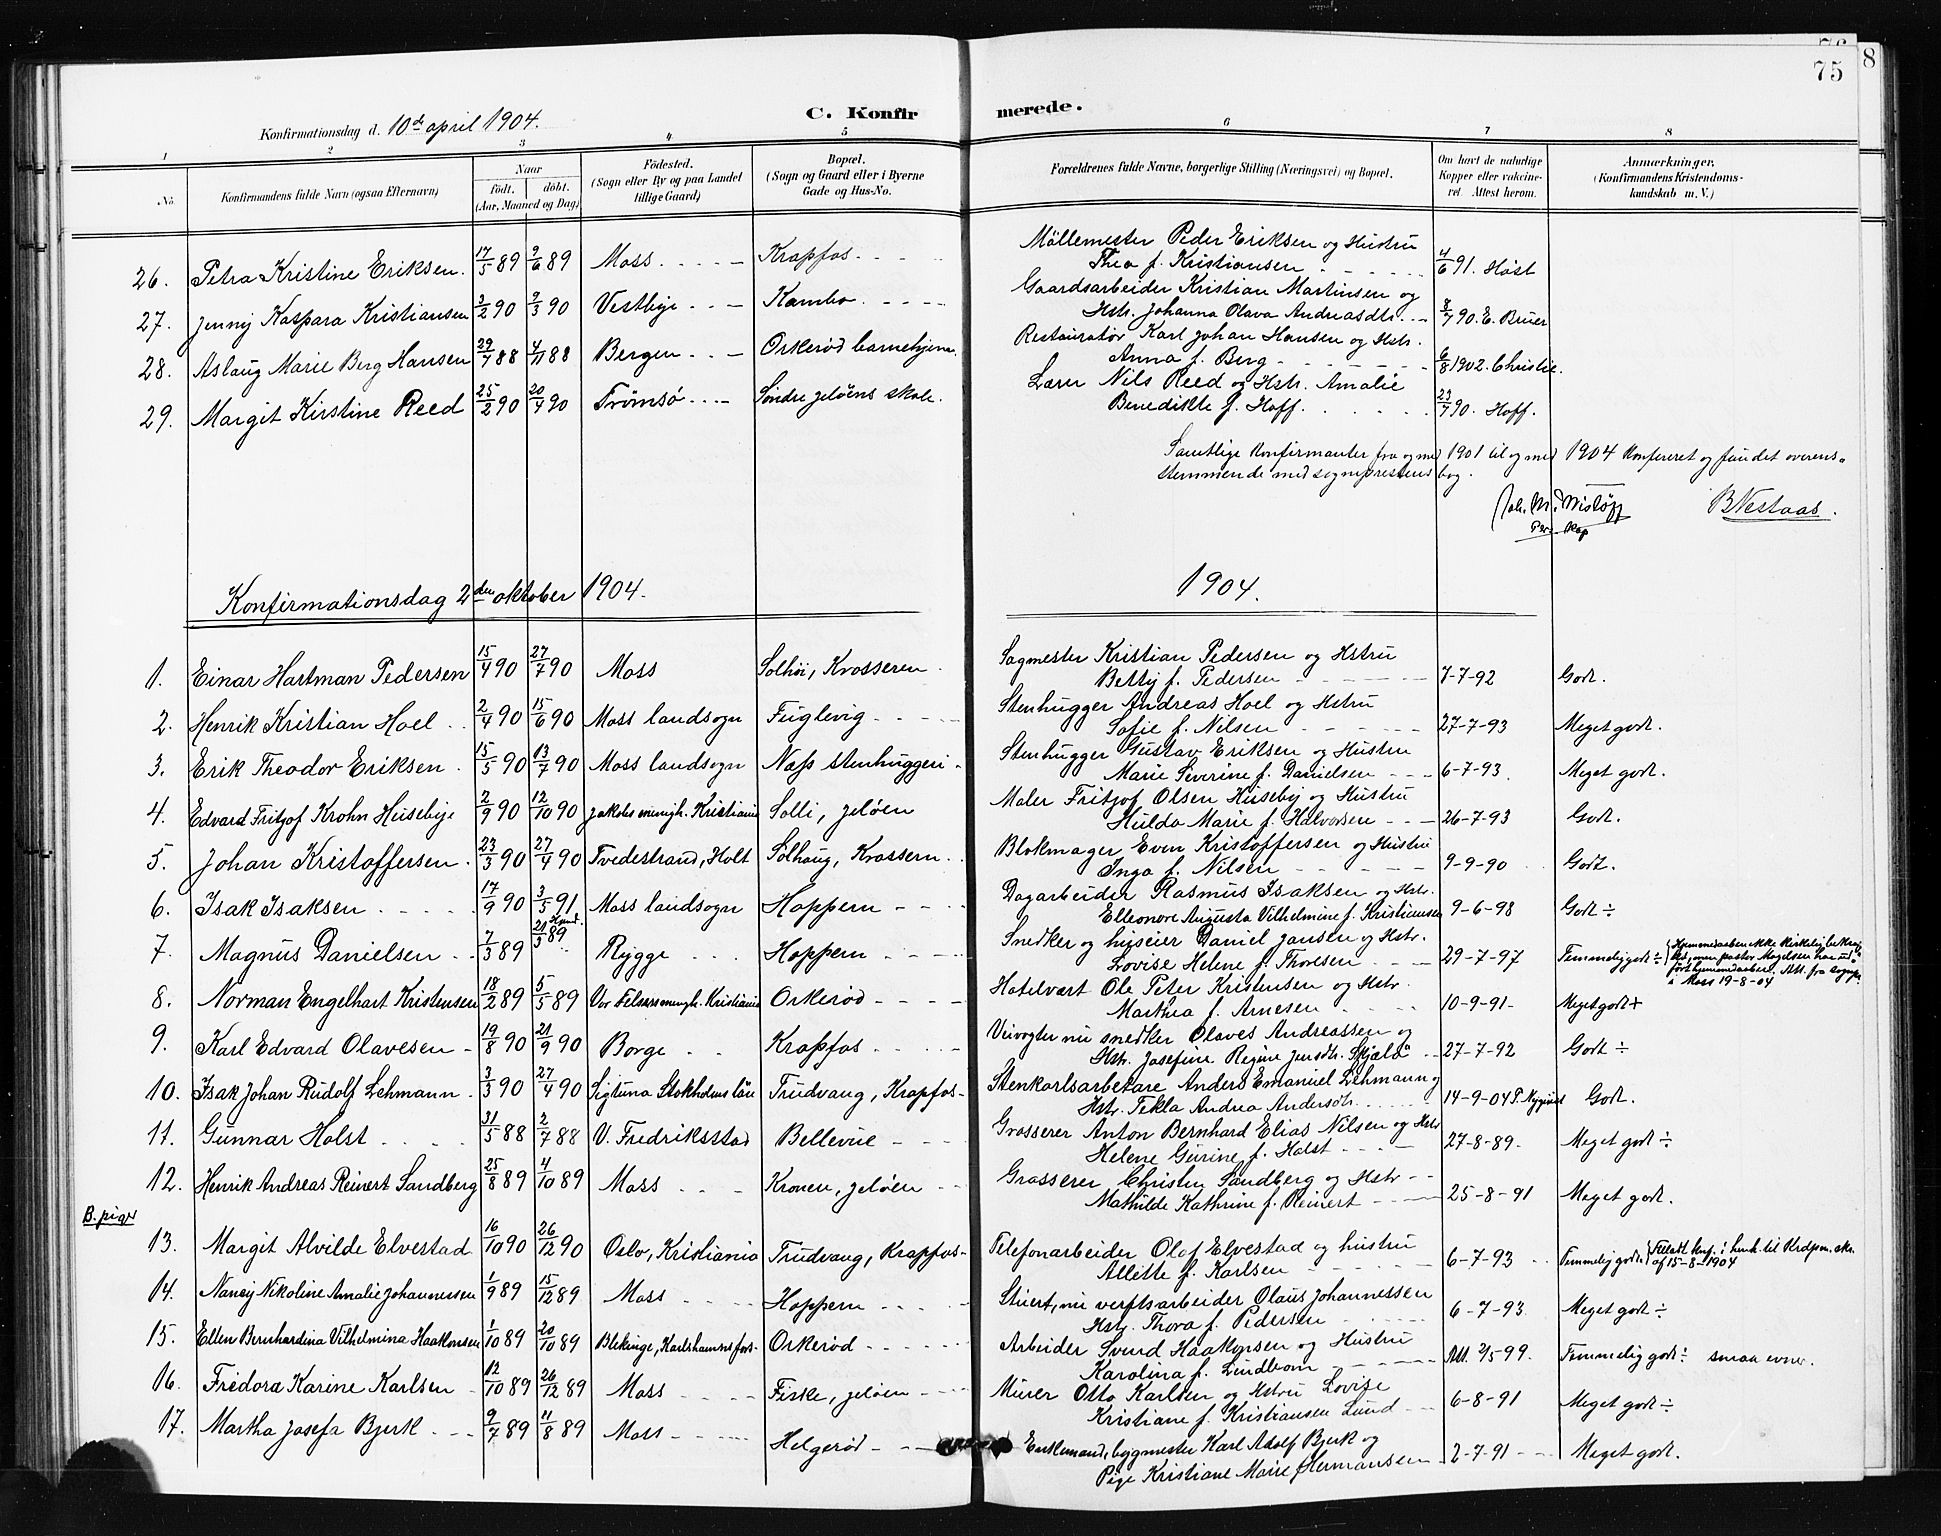 75
8
C. Konfirmerede.
Konfirmationsdag d. 10de april 1904.
1 2 3 4 5 6 7 8
No. Konfirmandens fulde Navn (ogsaa Efternavn) Naar födt. döbt. (Aar, Maaned og Dag) Födested. (Sogn eller By og paa Landet tillige Gaard) Bopæl. (Sogn og Gaard eller i Byerne Gade og Hus-No. Forældrenes fulde Navne, borgerlige Stilling (Næringsvei) og Bopæl. Om havt de naturlige Kopper eller vakcineret. Attest herom. Anmærkninger. (Konfirmandens Kristendomskundskab m. V.)
26. Petra Kristine Eriksen. 17/5 89 9/6 89 Moss. Krapfos Möllemester Peder Eriksen og Hustru Thea f. Kristiansen 4/6 91. Höst
27. Jenny Kaspara Kristiansen 3/2 90 9/3 90 Vestbye Kambo. Gaardsarbeider Kristian Martinsen og Hstr. Johanna Olava Andreasdtr. 8/7 90. E. Bruer
28. Aslaug Marie Berg Hansen 29/7 88 4/11 88 Bergen Orkerød barnehjem. Restauratør Karl Johan Hansen og Hstr. Anna f. Berg 6/8 1902. Christie.
29. Margit Kirstine Reed 25/2 90 20/4 90 Tromsø Söndre Jeløens skole. Lærer Nils Reed og Hstr. Amalie Benedikte f. Hoff. 23/7 90. Hoff.
Samtlige Konfirmanter fra og med 1901 til og med 1904 Konfereret og fundet overens-
stemmende med sogneprestens bog.
B Nestaas.
Konfirmationsdag 2den oktober 1904. 1904.
1. Einar Hartman Pedersen 15/4 90 27/7 90 Moss Solhöi, Krosseren Sagmester Kristian Pedersen og Hstru Betty f. Pedersen 7-7-92 Godt.
2. Henrik Kristian Hoel 2/4 90 15/6 90 Moss landsogn Fuglevig Stenhugger Andreas Hoel og Hstru Sofie f. Nilsen 27-7-93 Meget godt.
3. Erik Theodor Eriksen 15/5 90 13/7 90 Moss landsogn Næss stenhuggeri Stenhugger Gustav Eriksen og Hustru Marie Severine f. Danielsen 6-7-93. Meget godt.
4. Edvard Fritjof Krohn Huseby 2/9 90 12/10 90 Jakobs menigh. Kristiania Solli, Jeløen Maler Fritjof Olsen Huseby og Hustru Hulda Marie f. Halvorsen 26-7-93 Godt.
5. Johan Kristoffersen 23/3 90 27/4 90 Tvedestrand, Holt Solhaug, Krossern Blokmager Even Kristoffersen og Hustru Inga f. Nilsen 9-9-90 Godt.
6. Isak Isaksen 17/9 90 3/5 91 Moss landsogn Hoppern Dagarbeider Rasmus Isaksen og Hstr. Elleonore Augusta Vilhelmine f. Kristiansen 9-6-98 Godt ÷
7. Magnus Danielsen 7/3 89 21/3 89 Rygge Hoppern Snedker og huseier Daniel Jansen og Hstr. Lovise Helene f. Thoresen 29-7-97 Temmelig godt ÷ Hjemmedaaben ikke kirkelig bekræftet, men pastor Magelsen har udført hjemmedaaben. Att. fra sognep. i Moss 19-8-04
8. Norman Engelhart Kristensen 18/2 89 5/5 89 Vor Frelsers menigh. Kristiania Orkerød Hotelvært Ole Peter Kristensen og Hstr. Marthea f. Arnesen 10-9-91 Meget godt +
9. Karl Edvard Olavesen 19/8 90 21/9 90 Borge Krapfos Veivogter nu snedker Olaves Andreassen og Hstr. Josefine Regine Jensdtr. Skjelö 27-7-92 Godt ÷
10. Isak Johan Rudolf Lehmann 3/3 90 27/4 90 Sigtuna Stokholms län Trudvang, Krapfos Stenkarlsarbetare Anders Emanuel Lehmann og Hstr. Tekla Andrea Andersdtr. 14-9-04 Godt.
11. Gunnar Holst 31/5 88 2/7 88 V. Fredriksstad Bellevue Grosserer Anton Bernhard Elias Nilsen og Hstr Helene Gurine f. Holst 27-8-89 Meget godt ÷
12. Henrik Andreas Reinert Sandberg 25/8 89 4/10 89 Moss Kronen, Jeløen Grosserer Christen Sandberg og Hstr Mathilde Kathrine f. Reinert 25-8-91 Meget godt.
B. piger
13. Margit Alvilde Elvestad 16/10 90 26/12 90 Oslo, Kristiania Trudvang, Krapfos Telefonarbeider Olaf Elvestad og hustru Allette f. Karlsen 6-7-93 Temmelig godt. Tilladt konf. i henh. til Krdpm. skr. af 15-8-1904
14. Nancy Nikoline Amalie Johannessen 1/9 89 15/12 89 Moss Hoppern Stuert, nu verftsarbeider Olaus Johannessen Hstr. Thora f. Pedersen 6-7-93 Meget godt ÷
15. Ellen Bernhardina Vilhelmina Haakonsen 1/10 89 20/10 89 Blekinge, Karlshamns fors. Orkerød Arbeider Svend Haakonsen og Hustru Karolina f. Lundbom Att. 2/5 99. Temmelig godt ÷ smaa evner.
16. Fredora Karine Karlsen 12/10 89 26/12 89 Moss Fiske, Jeløen Murer Otto Karlsen og Hstru Lovise Kristiane f. Kristiansen Lund 6-8-91 Meget godt ÷
17. Martha Josefa Bjerk 9/7 89 11/8 89 Moss Helgerød Enkemand, bygmester Karl Adolf Bjerk og Pige Kristiane Marie Hermansen 2-7-91 Meget godt.